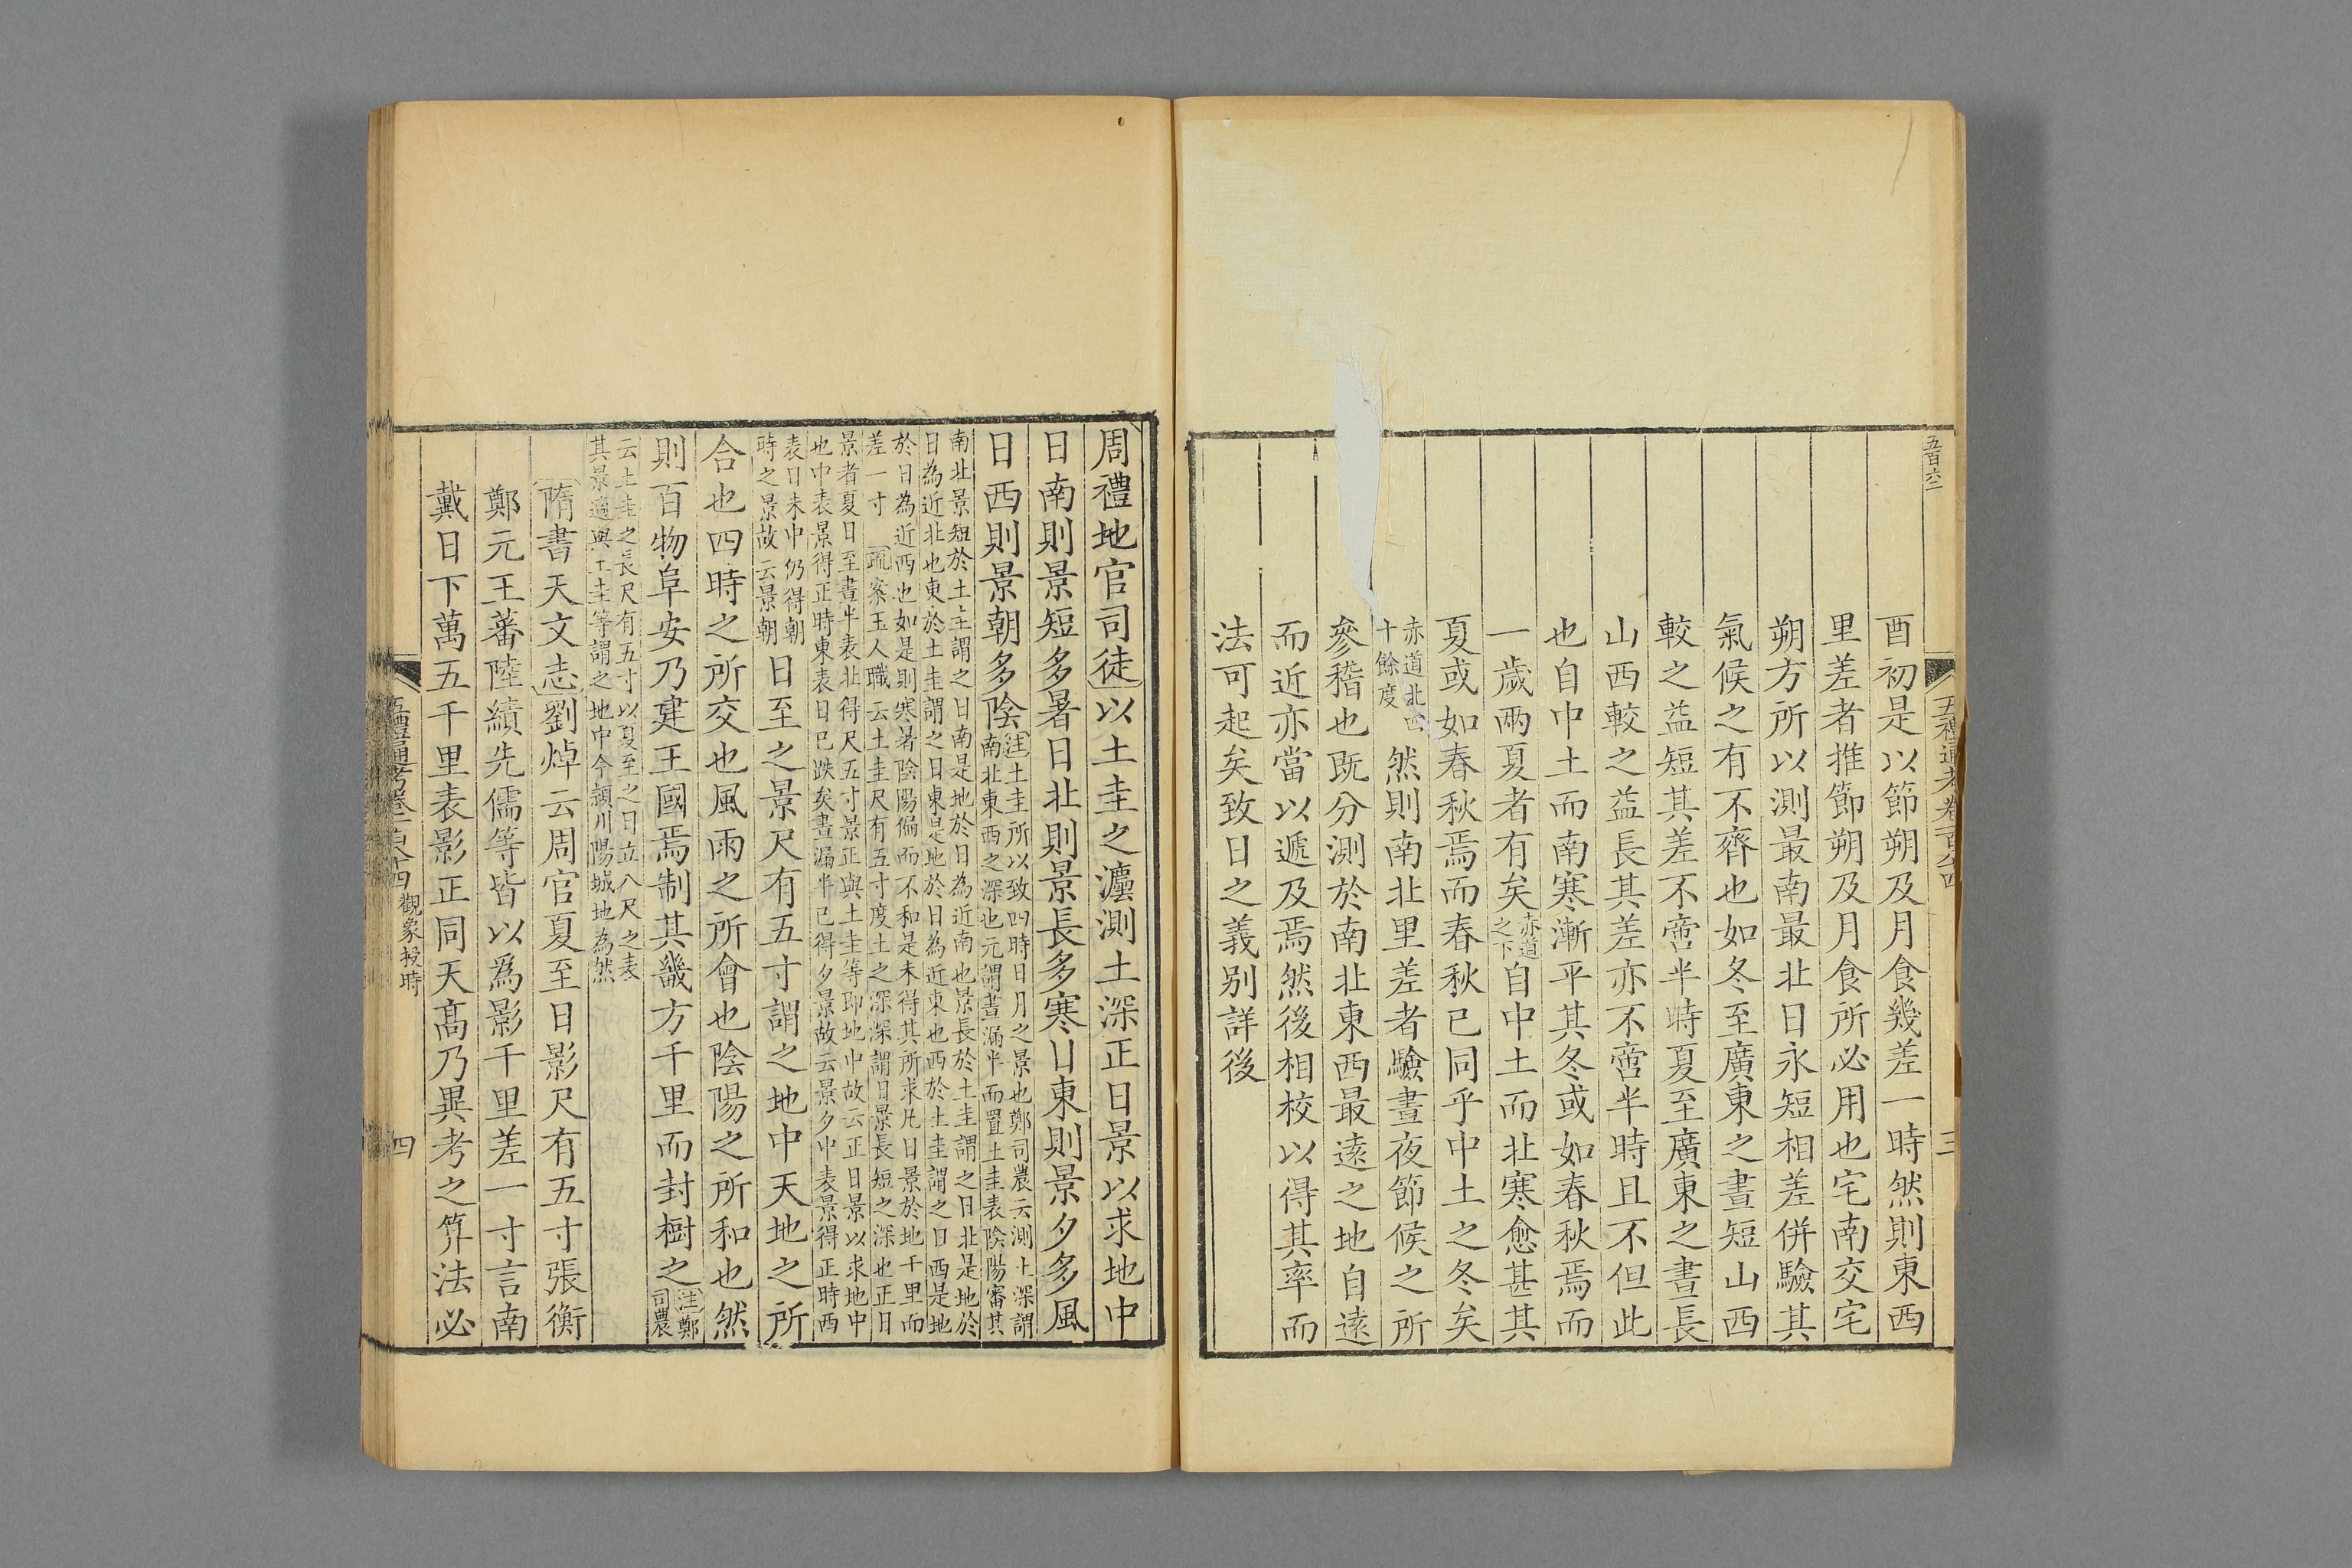 五百六二
五禮通考卷一百八十四
三
酉初是以節朔及月食幾差一時然則東西
里差者推節朔及月食所必用也宅南交宅
朔方所以測最南最北日永短相差併驗其
氣候之有不齊也如冬至廣東之晝短山西
較之益短其差不啻半時夏至廣東之晝長
山西較之益長其差亦不啻半時且不但此
也自中土而南寒漸平其冬或如春秋焉而
一歲兩夏者有矣赤道之下自中土而北寒愈甚其
夏或如春秋焉而春秋已同乎中土之冬矣
赤道北四十餘度然則南北里差者驗晝夜節候之所
參稽也既分測於南北東西最遠之地自遠
而近亦當以遞及焉然後相校以得其率而
法可起矣致日之義别詳後
周禮地官司徒以土圭之灋測土深正日景以求地中
日南則景短多暑日北則景長多寒日東則景夕多風
日西則景朝多陰注土圭所以致四時日月之景也鄭司農云測土深謂
南北東西之深也元謂晝漏半而置土圭表陰陽審其
南北景短於土圭謂之日南是地於日為近南也景長於土圭謂之日北是地於
日為近北也東於土圭謂之日東是地於日為近東也西於土圭謂之日西是地
於日為近西也如是則寒暑陰陽偏而不和是未得其所求凡日景於地千里而
差一寸 疏案玉人職云土圭尺有五寸度土之深深謂日景長短之深也正日
景者夏日至晝半表北得尺五寸景正與土圭等即地中故云正日景以求地中
也中表景得正時東表日已跌矣晝漏半已得夕景故云景夕中表景得正時西
表日未中仍得朝時之景故云景朝日至之景尺有五寸謂之地中天地之所
合也四時之所交也風雨之所會也陰陽之所和也然
則百物阜安乃建王國焉制其畿方千里而封樹之注鄭司農
云土圭之長尺有五寸以夏至之日立八尺之表
其景適與土圭等謂之地中今潁川陽城地為然
隋書天文志劉焯云周官夏至日影尺有五寸張衡
鄭元王蕃陸績先儒等皆以為影千里差一寸言南
戴日下萬五千里表影正同天高乃異考之筭法必
五禮通考卷一百八十四 觀象授時
四